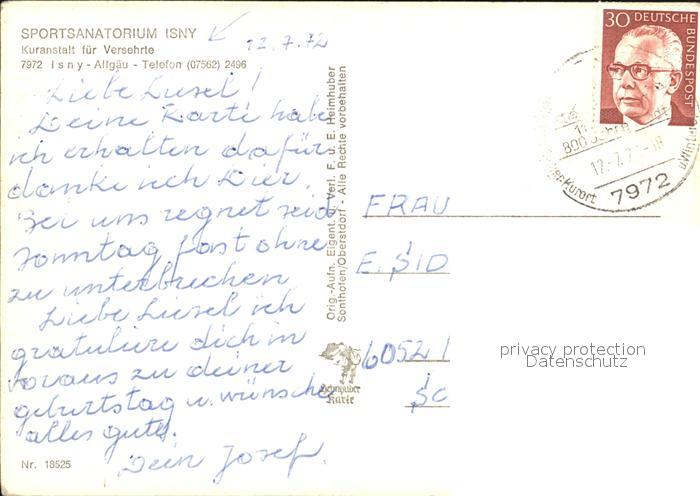 SPORTSANATORIUM ISNY
Kuranstalt für Versehrte
7972 Isny - Allgäu - Telefon (07562) 2496
12.7.72
Liebe Liesel!
Deine Karte habe
ich erhalten dafür
danke ich Dier.
Bei uns regnet seid
Sonntag fast ohne
zu unterbrechen
Liebe Liesel ich
gratuliere dich in
voraus zu deiner
geburtstag u. wünsche
alles gute.
Dein Josef.
Nr. 18525
Orig.-Aufn. Eigent. u. Verl. F. u. E. Heimhuber
Sonthofen/Oberstdorf - Alle Rechte vorbehalten
Schnauber
Karte
30 DEUTSCHE
BUNDESPOST
800 Jahre
12.-7.7
7972
FRAU
E. SID
60521
SC
privacy protection
Datenschutz